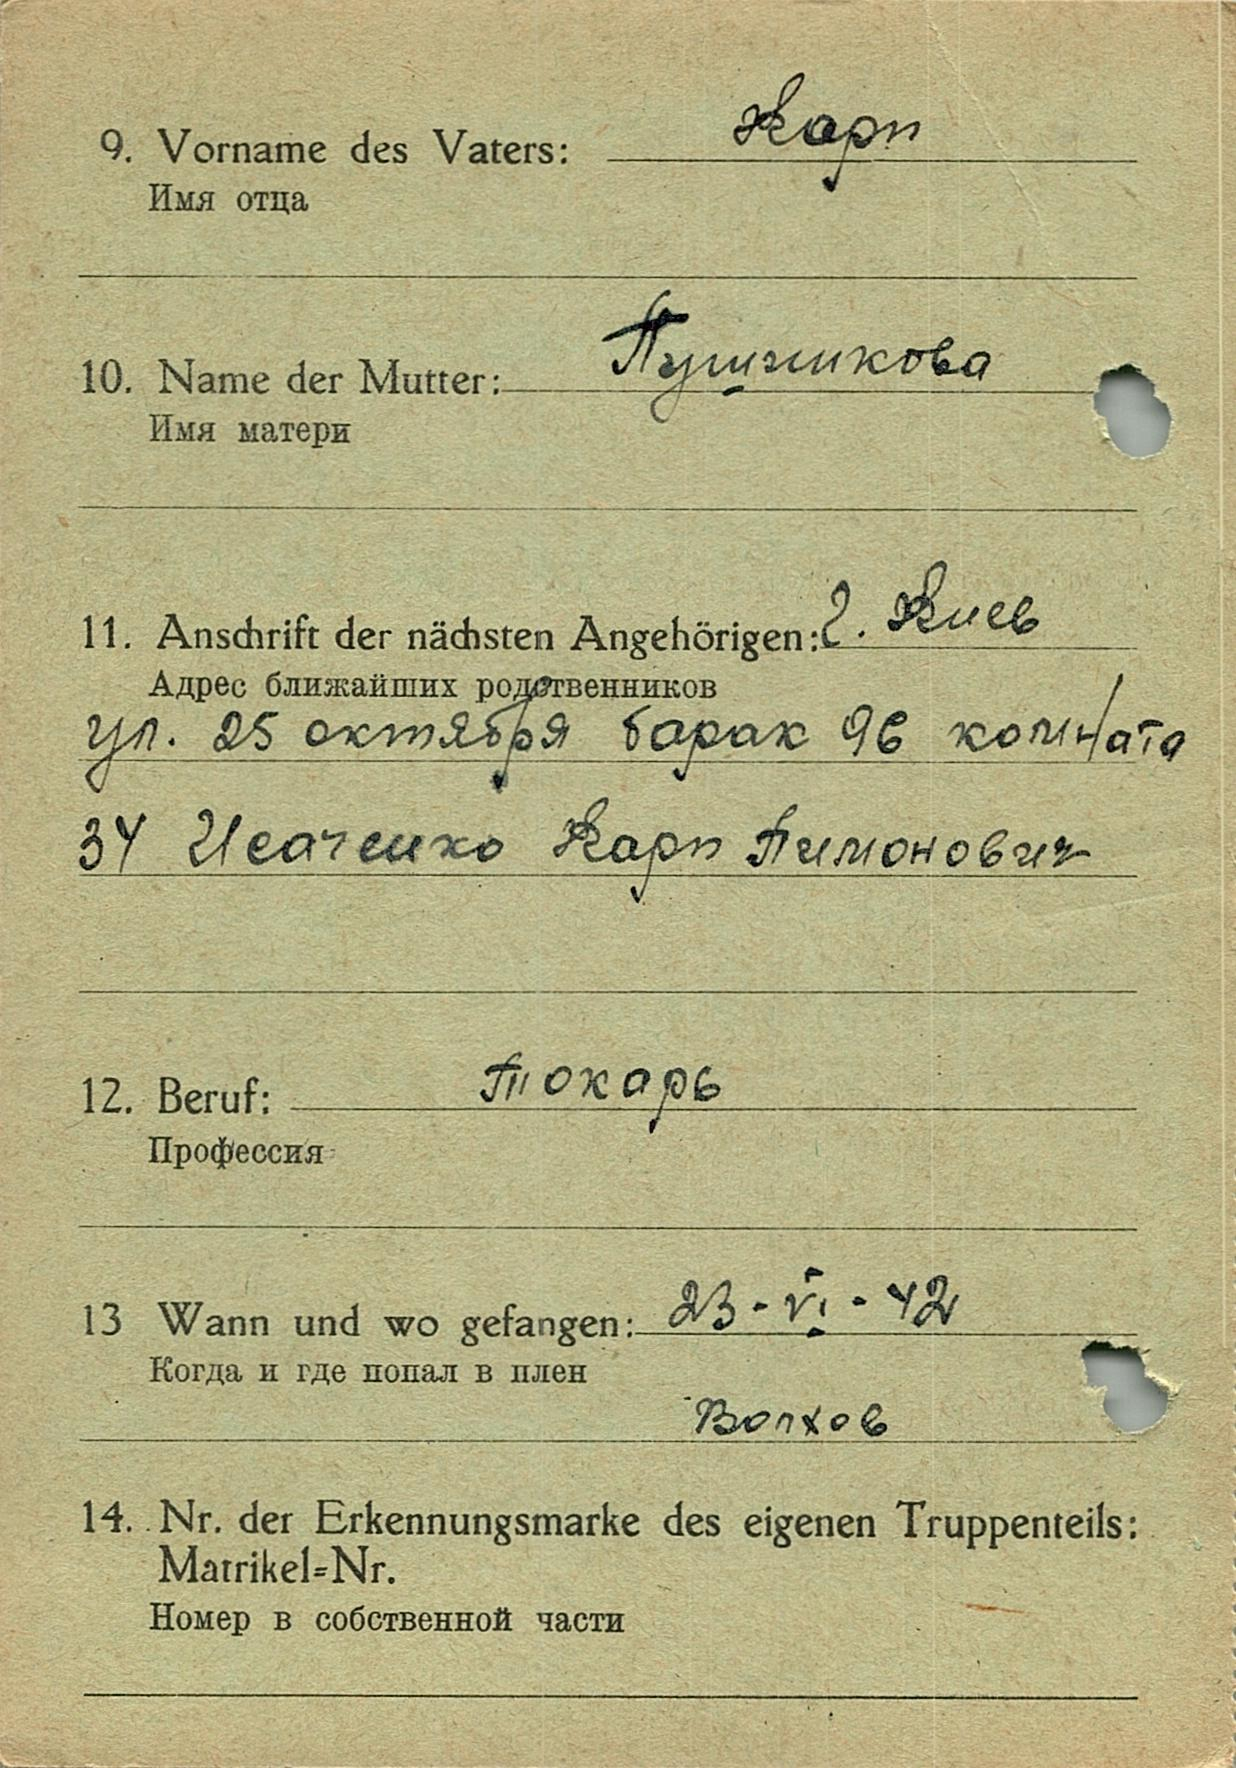 Карп
9. Vorname des Vaters:
Имя отца
Пушникова
10. Name der Mutter:
Имя матери
11. Anschrift der nächsten Angehörigen: г. Киев
Адрес ближайших родственников
ул. 25 октября барак 96 комната
34 Исаченко Карп Пимонович
12. Beruf: Токарь
Профессия
13 Wann und wo gefangen: 23-VI-42
Когда и где попал в плен
Волхов
14. Nr. der Erkennungsmarke des eigenen Truppenteils:
Matrikel=Nr.
Номер в собственной части